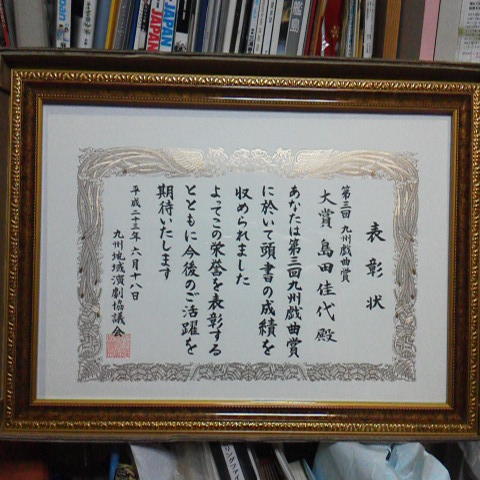 表彰状
第三回 九州戯曲賞
大賞 島田佳代 殿
あなたは第三回九州戯曲賞
に於いて頭書の成績を
収められました
よってこの栄誉を表彰する
とともに今後のご活躍を
期待いたします
平成二十三年六月十八日
九州地域演劇協議会
JAPAN
JAPAN